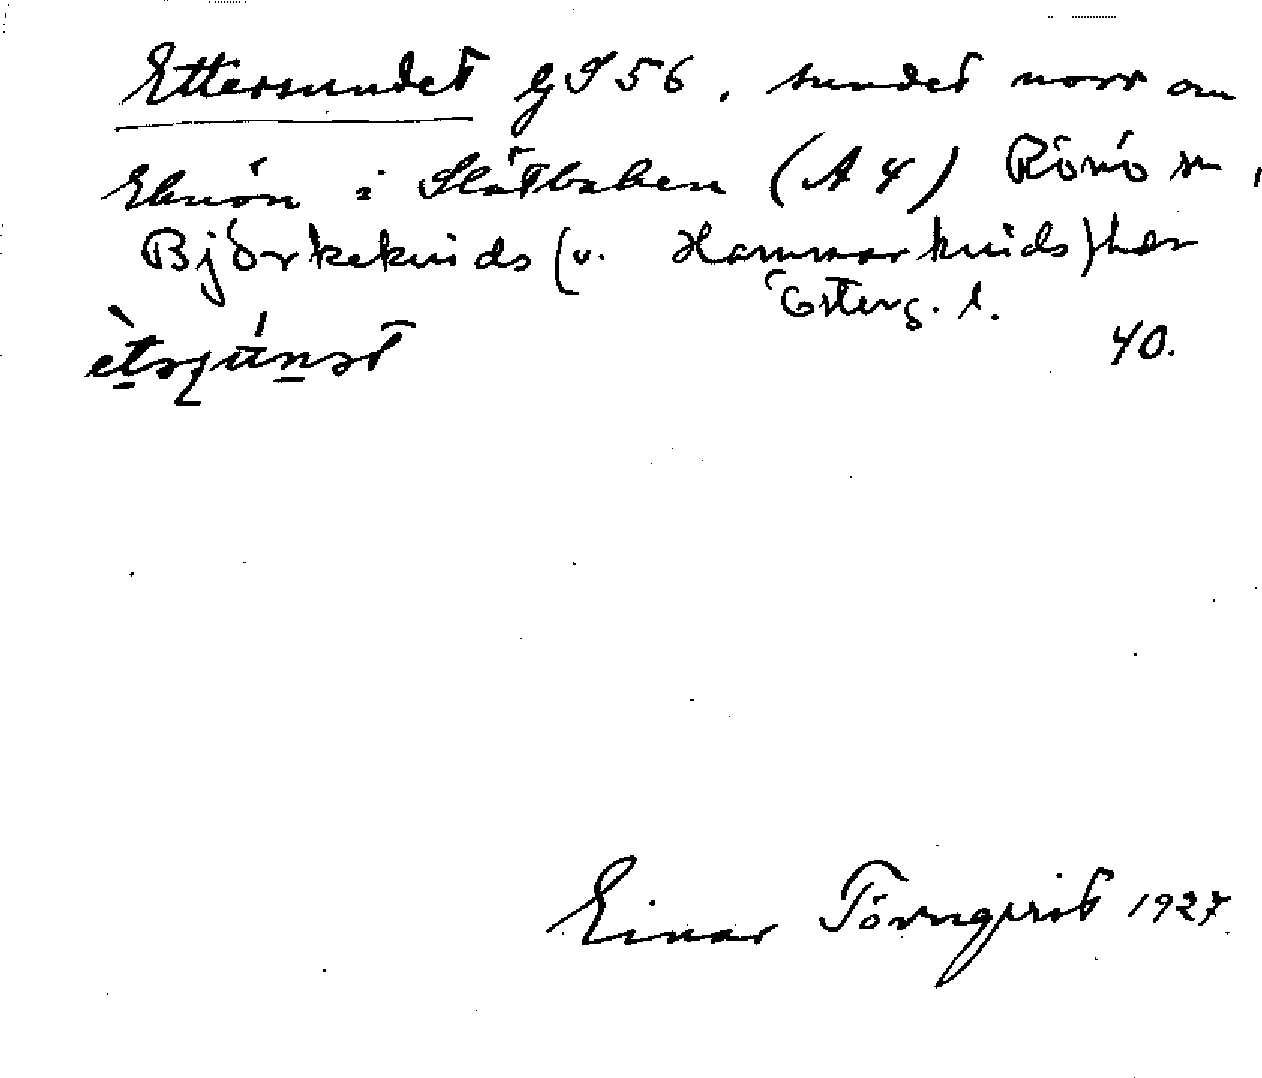 Ettersundet GS 56. sundet norr om
Eknön i Slätbaken (A 4) Rönö sn,
Björkekinds (v. Hammarkinds) här
Österg. l.
40.
Einar Törnqvist 1927